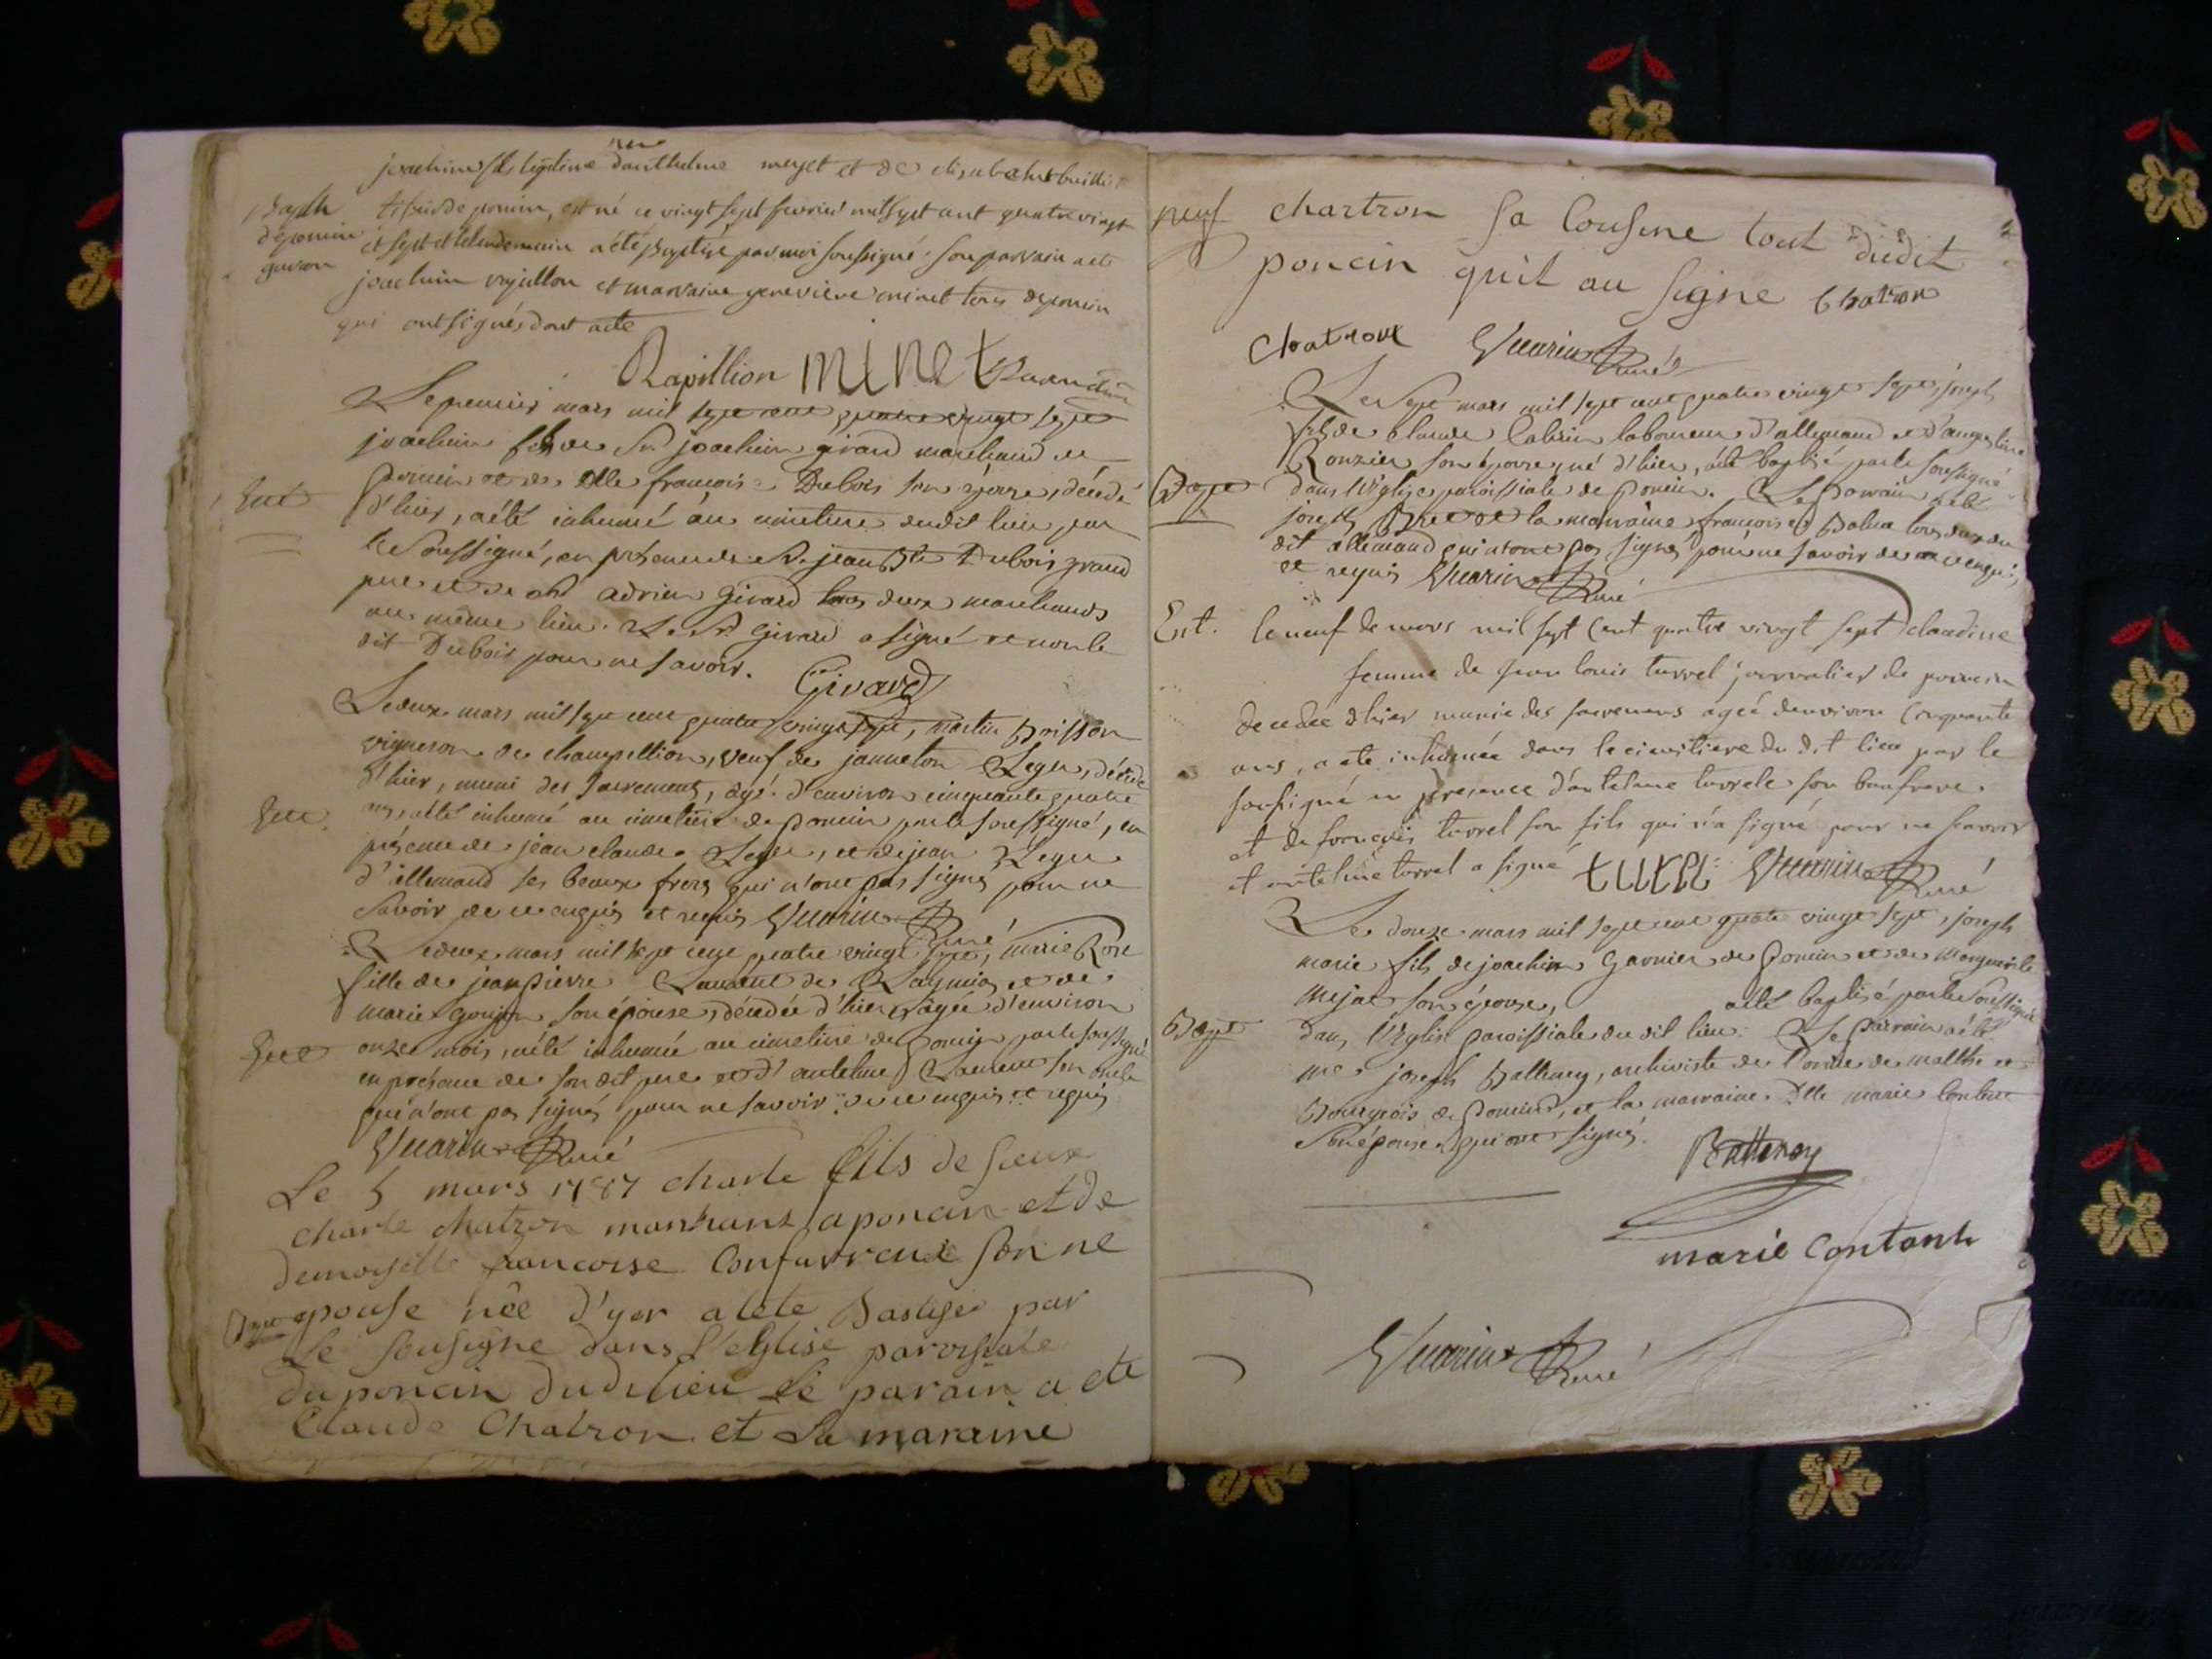 joachim fils légitime d'anthelme meyet et de elisabeth
Bapth
de poncin, est né ce vingt sept fevrier mil sept cent quatre vingt
de poncin
et sept et le lendemain a été baptisé par moi soussigné. son parrain a été
joachim et marraine genevieve minet tous de poncin
qui ont signés dont acte
Rapillion minet
Le premier mars mil sept cent quatre vingt sept
joachim fils de Sr. joachim girard marchand de
poncin et de Dlle françoise Dubois son épouse, décédé
Ent
d'hier, a été inhumé au cimetiere dudit lieu par
le soussigné, en présence de Sr. jean Bte Dubois grand
pere et de adrien Girard tous deux marchands
au même lieu. Le Sr. Girard a signé et non le
dit Dubois pour ne savoir. Girard
Le deux mars mil sept cent quatre vingt sept, martin Boisson
vigneron de champeillion, veuf de janneton Leger, décédé
d'hier, muni des sacrements, âgé d'environ cinquante quatre
Ent.
ans, a été inhumé au cimetiere de Poncin par le soussigné, en
présence de jean claude Leger, et de jean Leger
d'allemand ses beaux freres qui n'ont pas signés pour ne
savoir de ce enquis et requis Guarin Curé
Le deux mars mil sept cent quatre vingt sept, marie Rose
fille de jean pierre Laurent de Lagnieu et de
marie goujon son épouse, décédée d'hier, âgée d'environ
Ent
onze mois, a été inhumée au cimetiere de Poncin par le soussigné
en présence de son dit pere et d'antelme Laurent son oncle
qui n'ont pas signés pour ne savoir de ce enquis et requis
Guarin Curé
Le 5 mars 1787 charle fils de sieur
charle chatron marchant a poncin et de
demoiselle francoise Confavreux son ne
Bapt
epouse née d'yer a eté Bastise par
le sousigne dans l'eglise paroisiale
du poncin dudit lieu le parain a ete
Claude Chatron et la maraine
neuf
chartron sa Cousine tout dudit
poncin quit au signe Chatron
Chatron Guarin Curé
Le sept mars mil sept cent quatre vingt sept, joseph
fils de claude laboureur d'allemand et d'
Ronzier son épouse, né d'hier, a été baptisé par le soussigné
Bapt
dans l'église paroissiale de Poncin. Le Parrain a été
joseph et la marraine françoise tous deux du
dit allemand qui n'ont pas signés pour ne savoir de ce enquis
et requis Guarin Curé
Ent.
le neuf de mars mil sept cent quatre vingt sept claudine
femme de jean louis turrel journalier de poncin
decedée d'hier munie des sacremens agée d'environ cinquante
ans, a eté inhumée dans le cimitiere du dit lieu par le
sousigné en presence d'antelme turrel son beaufrere.
et de françois turrel son fils qui n'a signé pour ne scavoir
et antelme turrel a signé turel Guarin Curé
Le douze mars mil sept cent quatre vingt sept, joseph
marie fils de joachim Garnier de Poncin et de marguerite
son épouse, a été baptisé par le soussigné
Bapt
dans l'église paroissiale du dit lieu. Le parrain a été
me joseph Batteney, archiviste de l'ordre de malthe et
Bourgeois de Poncin, et la marraine Dlle marie Contant
son épouse qui ont signés. Batteney
marie Contant
Guarin Curé